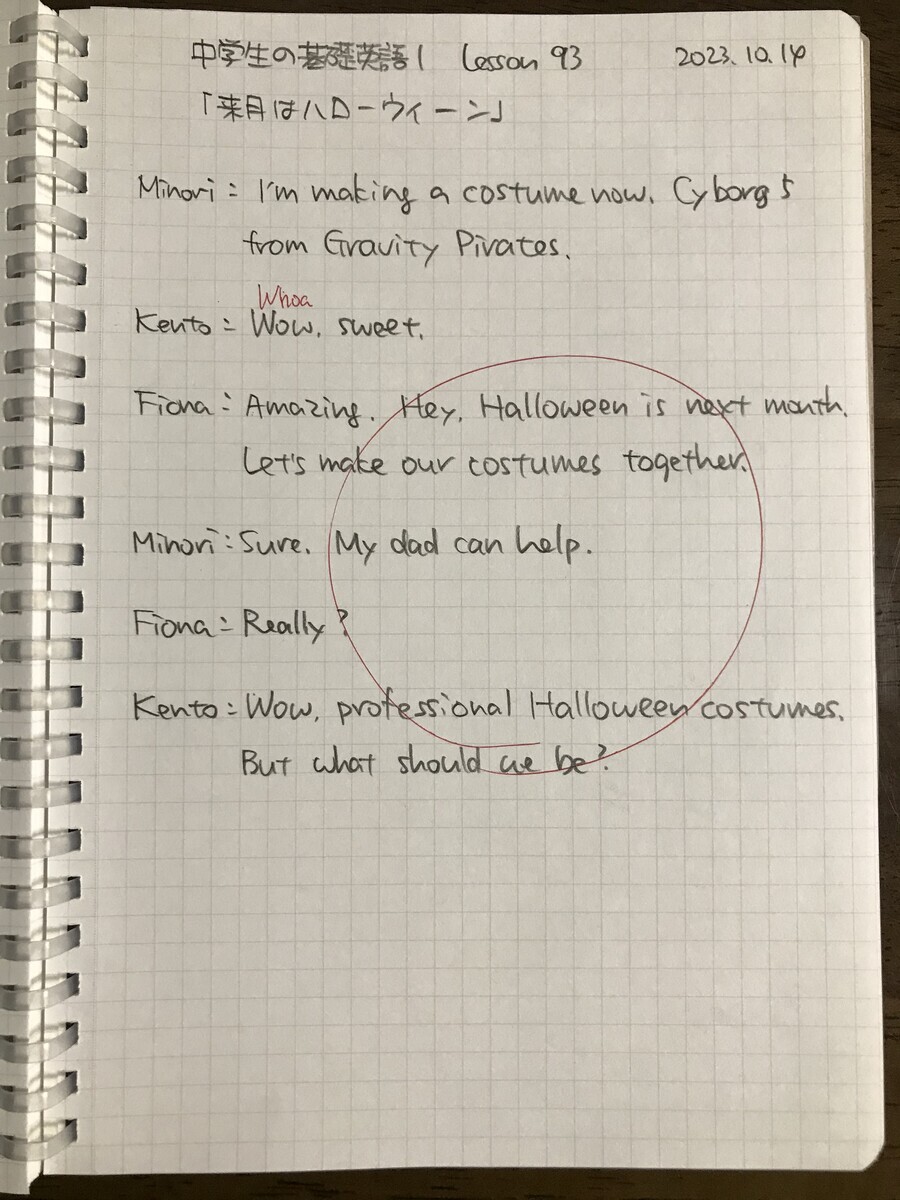 中学生の基礎英語1 Lesson 93 2023.10.14
「来月はハローウィーン」
Minori: I'm making a costume now. Cyborg 5
from Gravity Pirates.
Whoa
Kento: Wow, sweet.
Fiona: Amazing. Hey, Halloween is next month.
Let's make our costumes together.
Minori: Sure. My dad can help.
Fiona: Really?
Kento: Wow, professional Halloween costumes.
But what should we be?